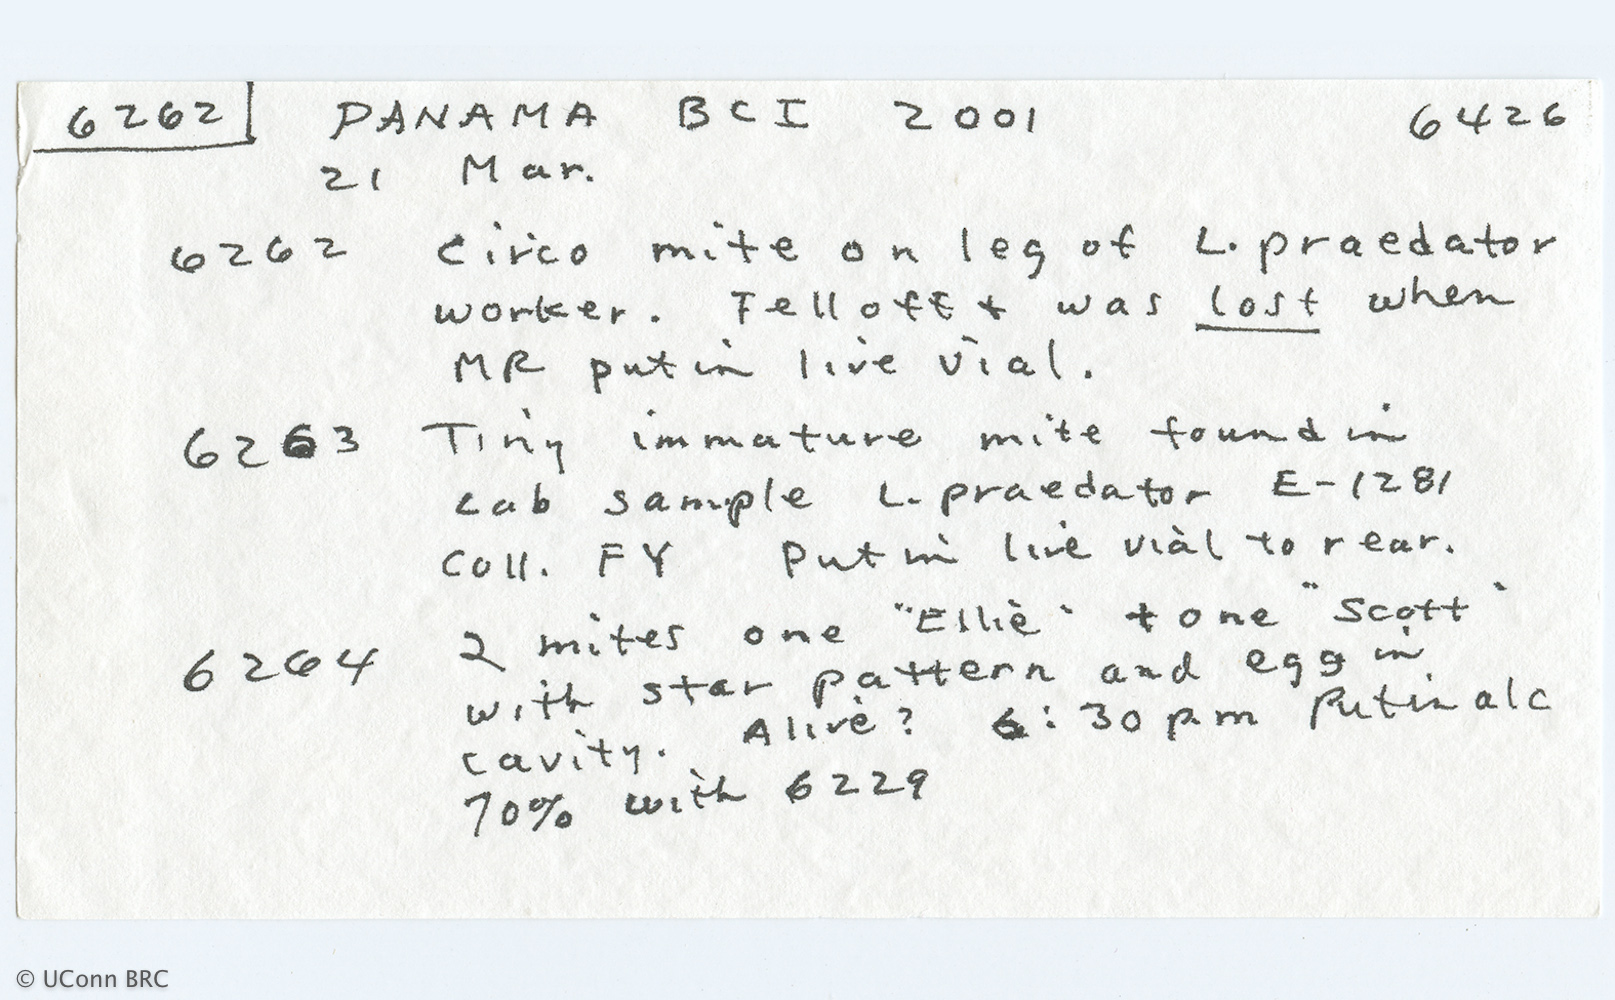 6262 PANAMA BCI 2001 6426
21 Mar.
6262 Circo mite on leg of L. praedator
worker. Fell off + was lost when
MR put in live vial.
6263 Tiny immature mite found in
Lab sample L. praedator E-1281
Coll. FY Put in live vial to rear.
6264 2 mites one "Ellie" + one "Scott"
with star pattern and egg in
cavity. Alive? 6:30 pm Put in alc
70% with 6229
© UConn BRC